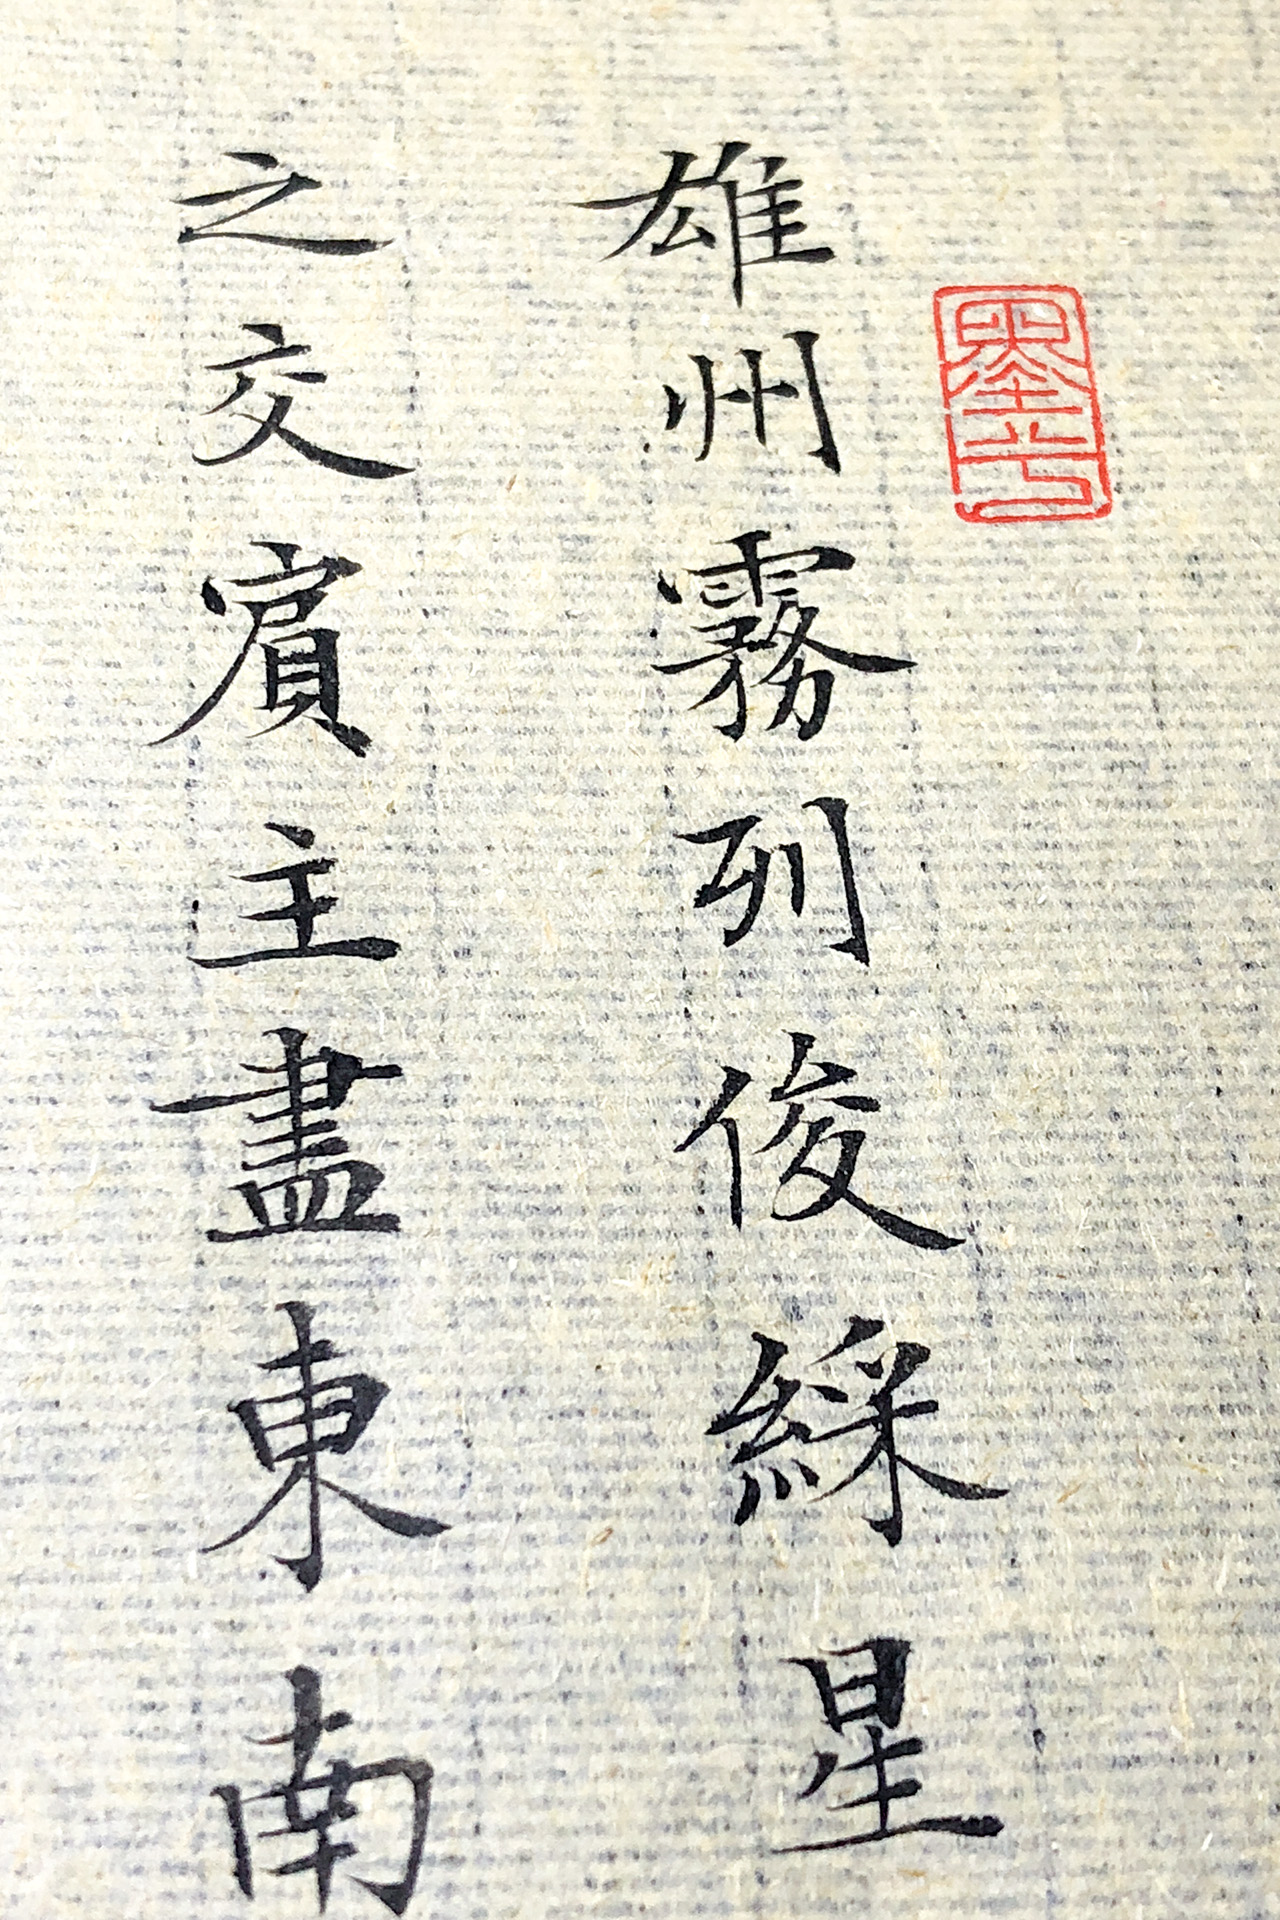 雄州霧列俊綵星
之交賓主盡東南